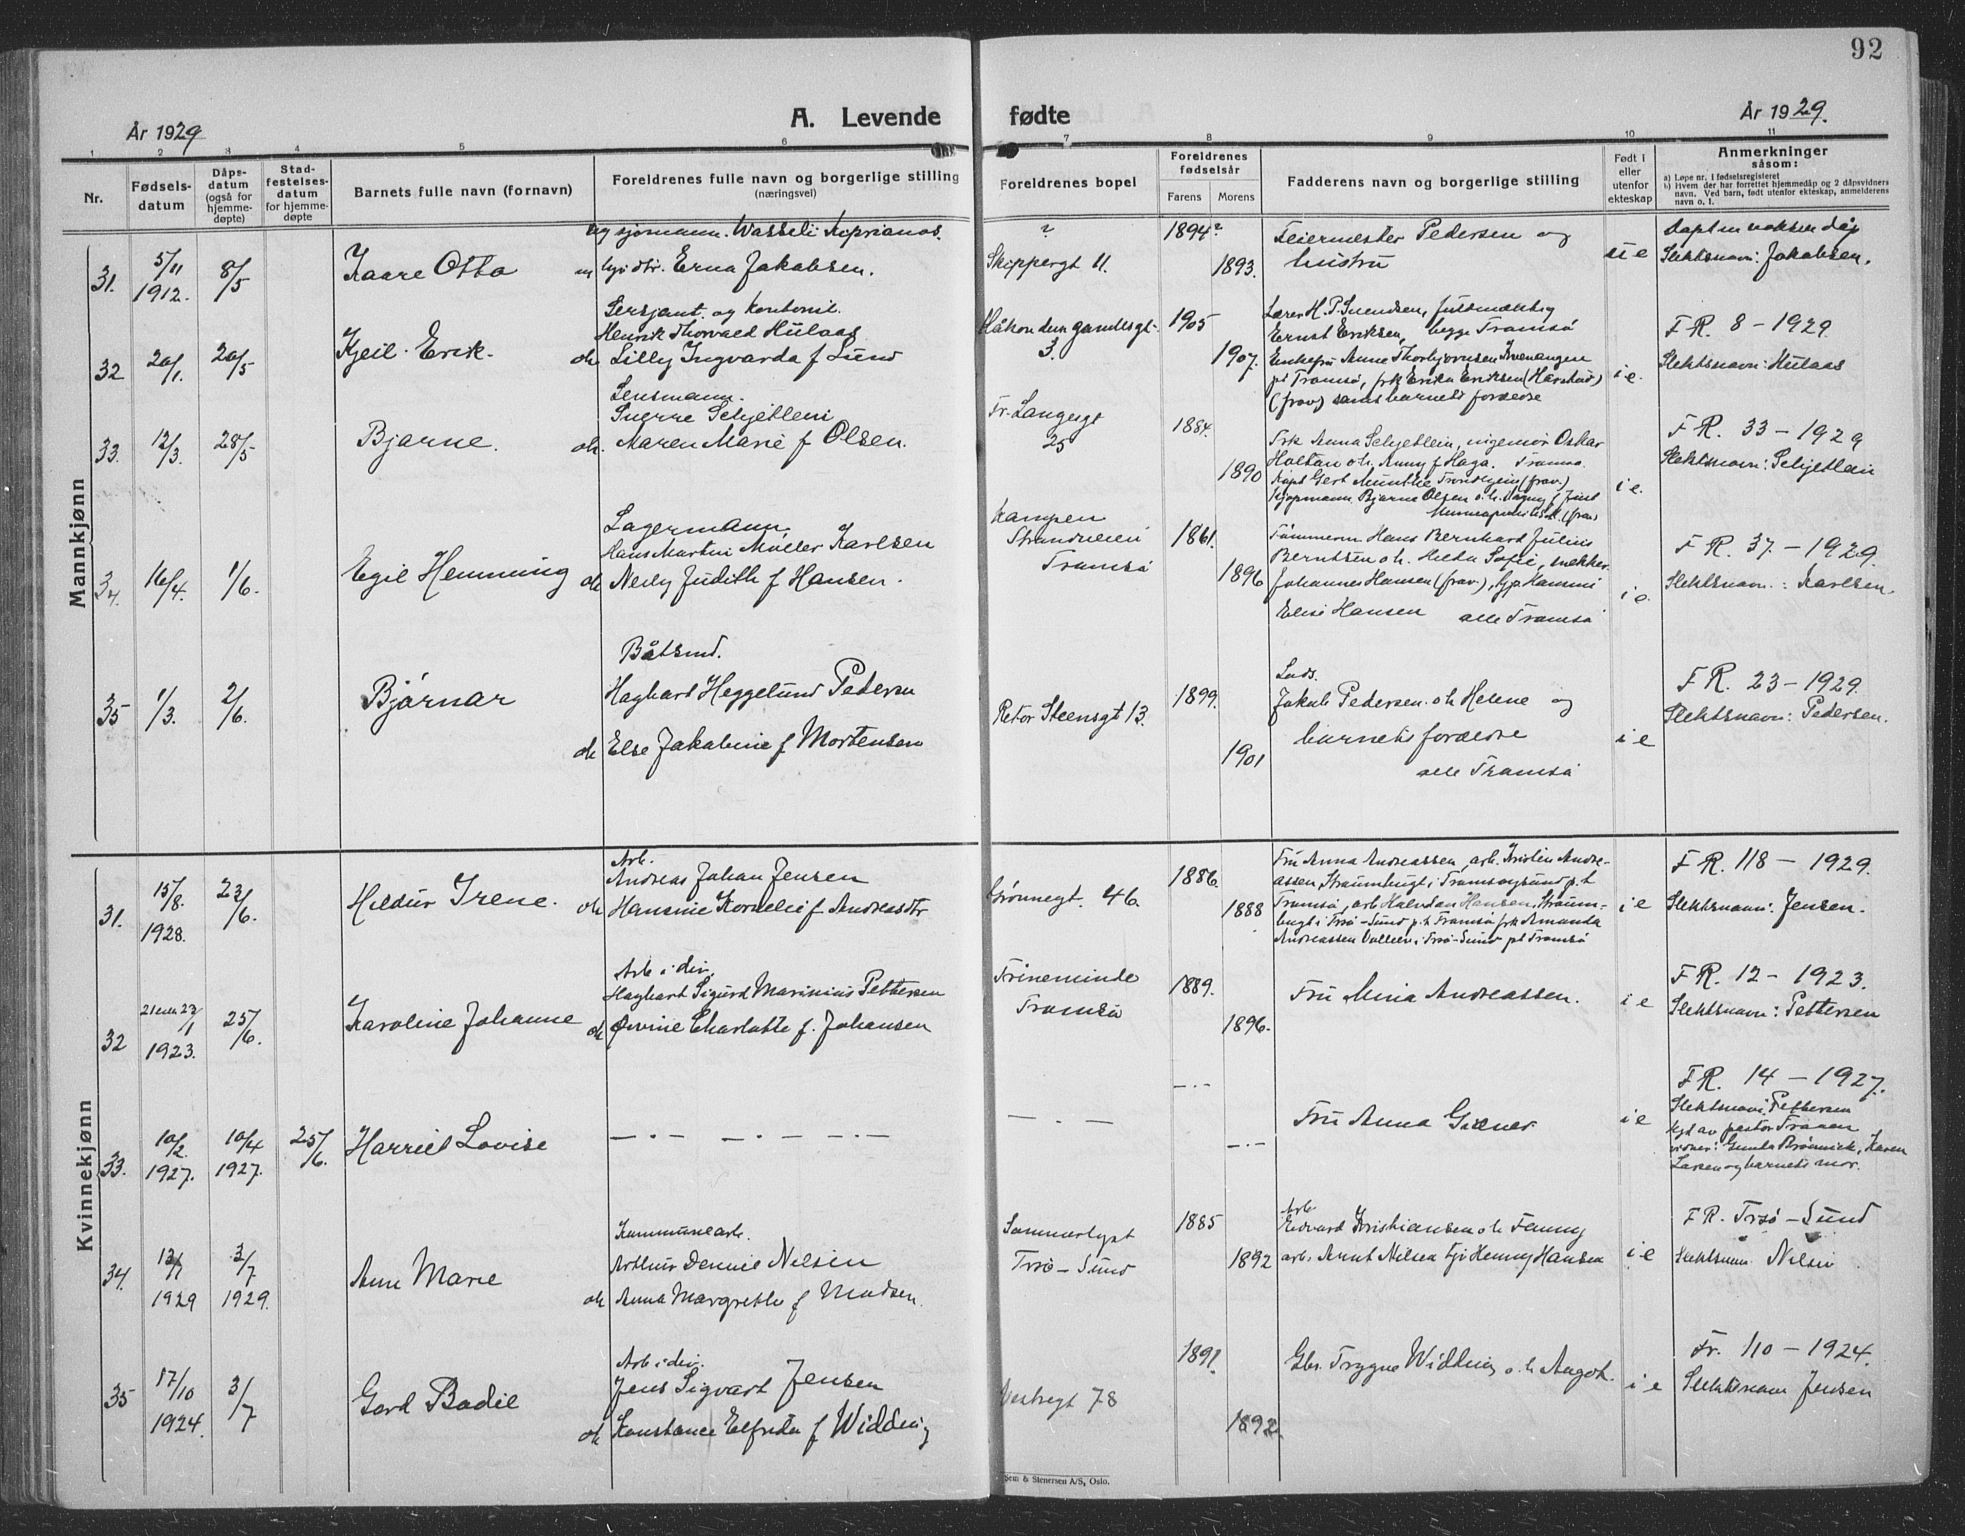 92
A. Levende fødte
År 1929
År 1929.
1 2 3 4 5 6 7 8 9 10 11
Nr.
Fødsels-
datum
Dåps-
datum
(også for
hjemme-
døpte)
Stad-
festelses-
datum
for hjemme-
døpte
Barnets fulle navn (fornavn)
Foreldrenes fulle navn og borgerlige stilling
(næringsvei)
Foreldrenes bopel
Foreldrenes
fødselsår
Farens
Morens
Fadderens navn og borgerlige stilling
Født i
eller
utenfor
ekteskap
Anmerkninger
såsom:
a) Løpe nr. i fødselsregisteret
b) Hvem der har forrettet hjemmedåp og 2 dåpsvidners
navn. Ved barn, født utenfor ekteskap, anmelderens
navn o. l.
Mannkjønn
31.
5/11
1912.
8/5
Kaare Otto
ug sjømann. Wasseli Kiprianos.
Erna Jakobsen.
?
Skippergt 11.
1894?
1893.
Feiermester Pedersen og
hustru
u e
Døpt en voksen dåp
Slektsnavn: Jakobsen.
32
20/1.
20/5
Kjell. Erik.
Sersjant. og
Henrik Thorvald Hulaas
oh Lilly Ingvarda f Lund
Håkon den gamlesgt.
3.
1905
1907.
Lærer H. P. Svendsen, fuldmektig
Ernst Eriksen, begge Tromsø
Enkefru Anne Thorbjørnsen Kvenangen
pt Tromsø, frk Erika Eriksen (Harstad)
(frav) samt barnets foreldre
i e.
F R. 8 - 1929
Slektsnavn: Hulaas
33.
12/3.
28/5
Bjarne.
Lensmann.
Sverre Schjetlein
oh. Maren Marie f Olsen.
Fr. Langesgt
25
1884.
1890
Frk Anna Schjetlein, ingeniør Oskar
Holtan o h. Anny f Haga. Tromsø.
Kapt Gert Munthe Trondhjem (frav.)
Kjøpmann Bjarne Olsen o. h. Dagny f
(frav)
i e.
F R. 33 - 1929
Slektsnavn: Schjetlein
34.
16/4.
1/6.
Egil Hemming
Lagermann,
Hans Martin Møller Karlsen
oh Nelly Judith f Hansen.
Kampen
Strandveien
Tromsø
1861.
1896
Tømmerm Hans Bernhard Julius
Berntsen o h. Hilda Sofie, snekker
Johannes Hansen (frav.),
Elise Hansen alle Tromsø
i e.
F R. 37 - 1929.
Slektsnavn: Karlsen.
35
1/3.
2/6.
Bjørnar
Båtsmd.
Hagbart Heggelund Pedersen
oh Else Jakobine f Mortensen
Peter Steensgt 13.
1899.
1901
Jakob Pedersen. o h Helene og
barnets foreldre
alle Tromsø
i e
F R. 23 - 1929.
Slektsnavn: Pedersen.
Kvinnekjønn
31.
15/8.
1928.
23/6.
Hildur Irene.
Arb.
Andreas Johan Jensen
oh Hansine Kornelie f Andreasdtr
Grønnegt. 46.
1886.
1888
Fru Anna Andreassen, arb. Kristian Andre-
assen, Straumbugt i Tromsøysund p. t
Tromsø, arb Halvdan Hansen, Straum-
bugt i Trsø-Sund p. t Tromsø frk Amanda
Andreassen i Trsø-Sund pt Tromsø
i e
F R. 118 - 1929.
Slektsnavn: Jensen.
32
21 22/1
1923.
25/6.
Karoline Johanne
Arb i div.
Hagbart Sigurd Marinius Pettersen
oh Øvine Charlotte f. Johansen
Trineminde
Tromsø
1889.
1896.
Fru Mina Andreassen.
i e
F R. 12 - 1923.
Slektsnavn: Pettersen
33.
10/2.
1927.
10/4
1927.
25/6.
Harriet Lovise
— . — — . — — . —
— —
— . —
— . —
Fru Anna
i e
F R. 14 - 1927.
Slektsnavn, Pettersen
av pastor
vidner: Gunda Brønnick, Karen
Larsen og barnets mor.
34.
1929
3/7
1929.
Ann Marie
Kommunearb.
Arthur Dennie Nilsen
oh Anna Margrethe f Madsen.
Sommerlyst
Trsø-Sund
1885
1892
Arb
Edvard Kristiansen o h Fanny
arb. Arnt Nilsen Henny Hansen
i e
F R. Trsø-Sund
Slektsnavn Nilsen
35
17/10
1924.
3/7
Gerd Bodil
Arb i div.
Jens Sigvart Jensen
oh Konstance Elfrida f Widding
Vestregt 78
1891.
1892.
Gbr. Trygve Widding o. h Aagot.
i e
Fr. 110 - 1924.
Slektsnavn Jensen
Sem & Stenersen A/S, Oslo.